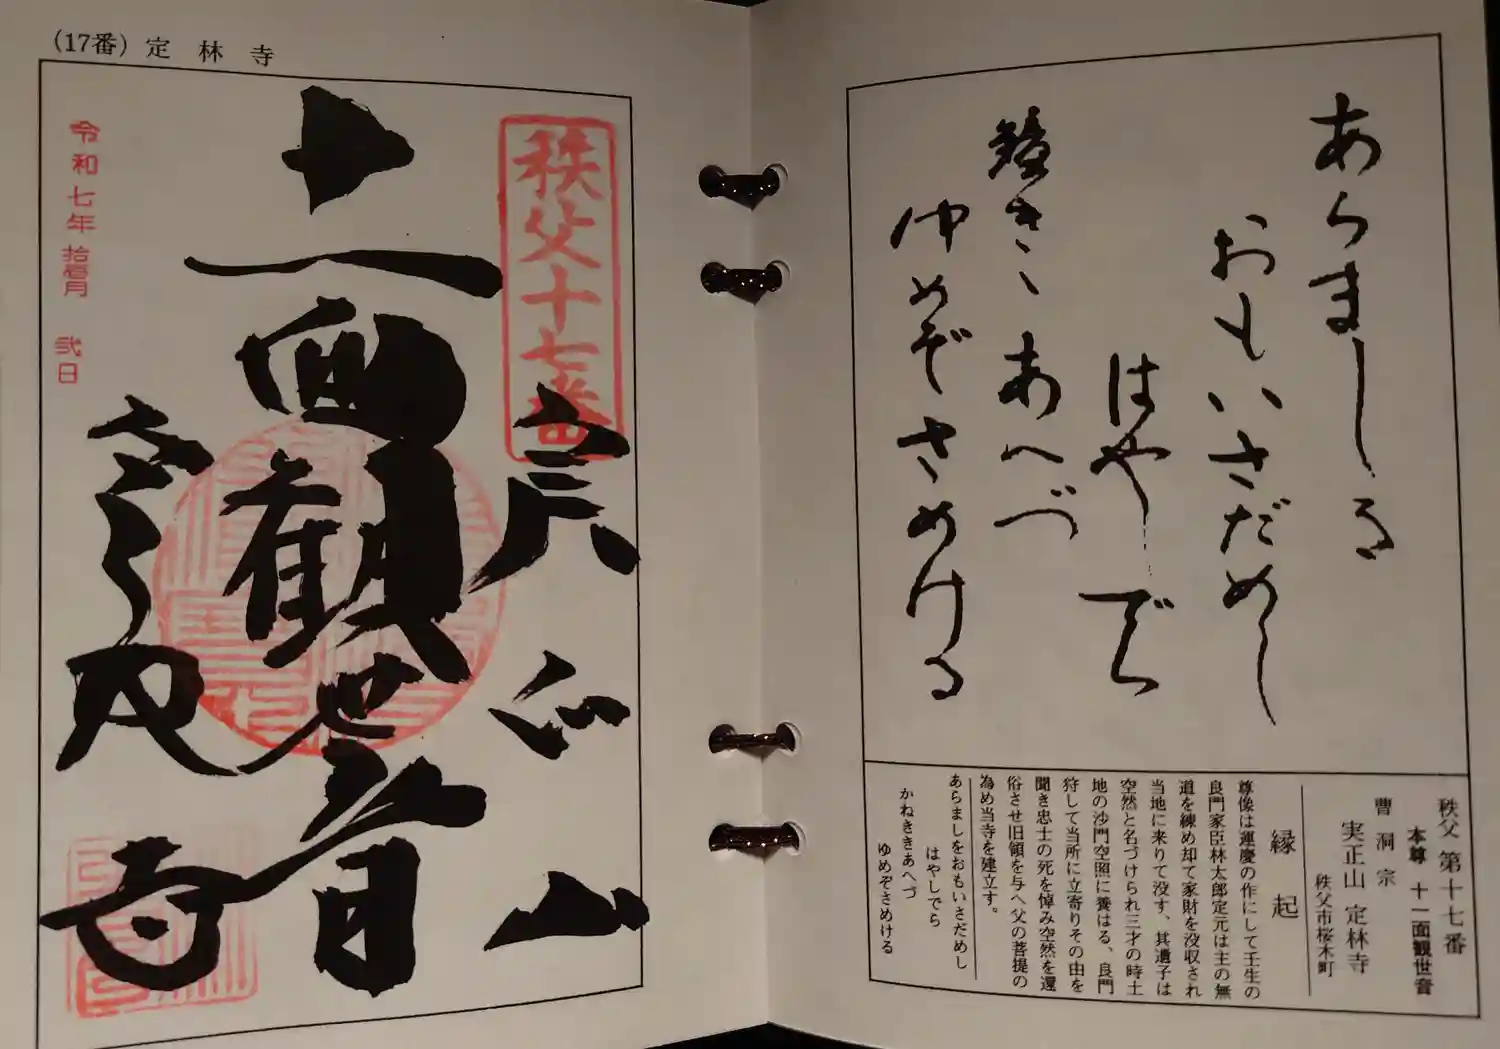 (17番) 定林寺
秩父十七番
実正山
十一面観世音
定林寺
令和七年 拾壱月 弐日
あらまし
おもいさだめし
はやしでら
鐘きゝあへづ
ゆめぞさめける
秩父 第十七番
本尊 十一面観世音
曹洞宗
実正山 定林寺
秩父市桜木町
縁起
尊像は運慶の作にして壬生の
良門家臣林太郎定元は主の無
道を練め却て家財を没収され
当地に来りて没す、其遺子は
空然と名づけられ三才の時土
地の沙門空照に養はる、良門
狩して当所に立寄りその由を
聞き忠士の死を悼み空然を還
俗させ旧領を与へ父の菩提の
為め当寺を建立す。
あらましをおもいさだめし
はやしでら
かねききあへづ
ゆめぞさめける